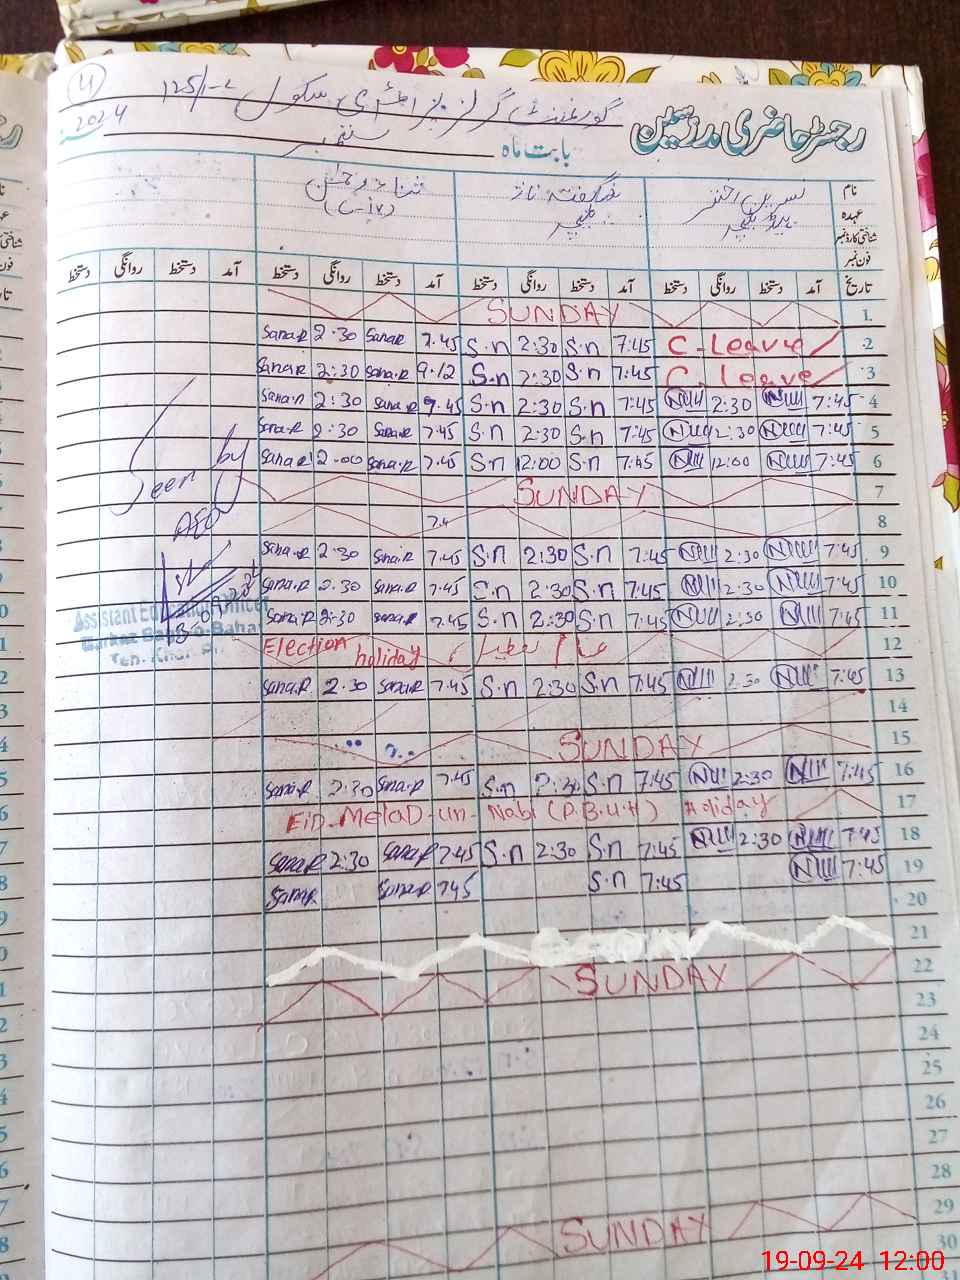 4
گورنمنٹ گرلز پرائمری سکول 125/1-L
رجسٹر حاضری مدرسین
بابت ماہ ستمبر 2024
نام نسرین اختر شگفتہ ناز
عہدہ ہیڈ ٹیچر ٹیچر (C-iv)
شناختی کارڈ نمبر
فون نمبر
تاریخ آمد دستخط روانگی دستخط آمد دستخط روانگی دستخط آمد دستخط روانگی دستخط آمد دستخط روانگی دستخط
SUNDAY 1
Sana.R 2:30 Sana.R 7.45 S.n 2:30 S.n 7:45 C-Leave 2
Sana.R 2:30 Sana.R 9.12 S.n 2:30 S.n 7:45 C.Leave 3
Sana.R 2:30 Sana.R 7.45 S.n 2:30 S.n 7:45 2:30 7:45 4
Sana.R 2:30 Sana.R 7.45 S.n 2:30 S.n 7:45 2:30 7:45 5
Sana.R 12:00 Sana.R 7.45 S.n 12:00 S.n 7:45 12:00 7:45 6
Seen by
SUNDAY 7
AEO
7.4 8
Sana.R 2:30 Sana.R 7.45 S.n 2:30 S.n 7:45 2:30 7:45 9
Sana.R 2:30 Sana.R 7.45 S.n 2:30 S.n 7:45 2:30 7:45 10
Assistant Education Officer
Sana.R 2:30 Sana.R 7.45 S.n 2:30 S.n 7:45 2:30 7:45 11
Election holiday عام تعطیل 12
Sana.R 2:30 Sana.R 7.45 S.n 2:30 S.n 7:45 2:30 7:45 13
14
SUNDAY 15
Sana.R 2:30 Sana.R 7.45 S.n 2:30 S.n 7:45 2:30 7:45 16
EiD-MelaD-un-Nabi (P.B.U.H) Holiday 17
Sana.R 2:30 Sana.R 7.45 S.n 2:30 S.n 7:45 2:30 7:45 18
Sana.R Sana.R 7.45 S.n 7:45 7:45 19
20
21
SUNDAY 22
23
24
25
26
27
28
SUNDAY 29
30
31
19-09-24 12:00